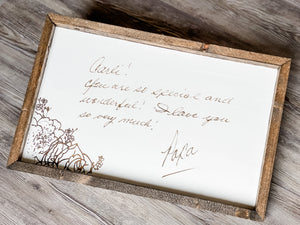 Carli!
You are so special and
wonderful! I love you
so very much!
Papa